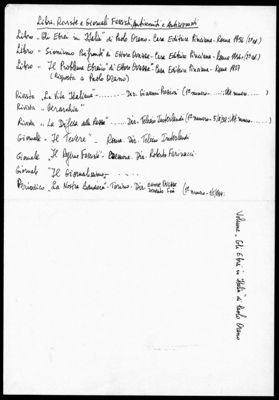 Libri, Riviste e Giornali Fascisti, Antisemiti e Antisionisti
Libro - "Gli Ebrei in Italia" di Paolo Orano - Casa Editrice Pinciana - Roma 1936 (2ª ed.)
Libro - Sionismo di Ettore Ovazza - Casa Editrice Pinciana - Roma
Libro - "Il Problema Ebraico" di Ettore Ovazza - Casa Editrice Pinciana - Roma 1937
(Risposta a Paolo Orano)
Rivista "La Vita Italiana" ...... Dir. Giovanni Preziosi (1º numero
Rivista "Gerarchia"
Rivista "La Difesa della Razza" ...... Dir. Telesio Interlandi (1º numero - 5/8/38
Giornale "Il Tevere" - Roma - Dir. Telesio Interlandi
Giornale "Il Regime Fascista" - Cremona - Dir. Roberto Farinacci
Giornale "Il Giornalissimo"
Periodico "La Nostra Bandiera" - Torino - Dir. Ettore Ovazza (1º numero
Volume "Gli Ebrei in Italia" di Paolo Orano